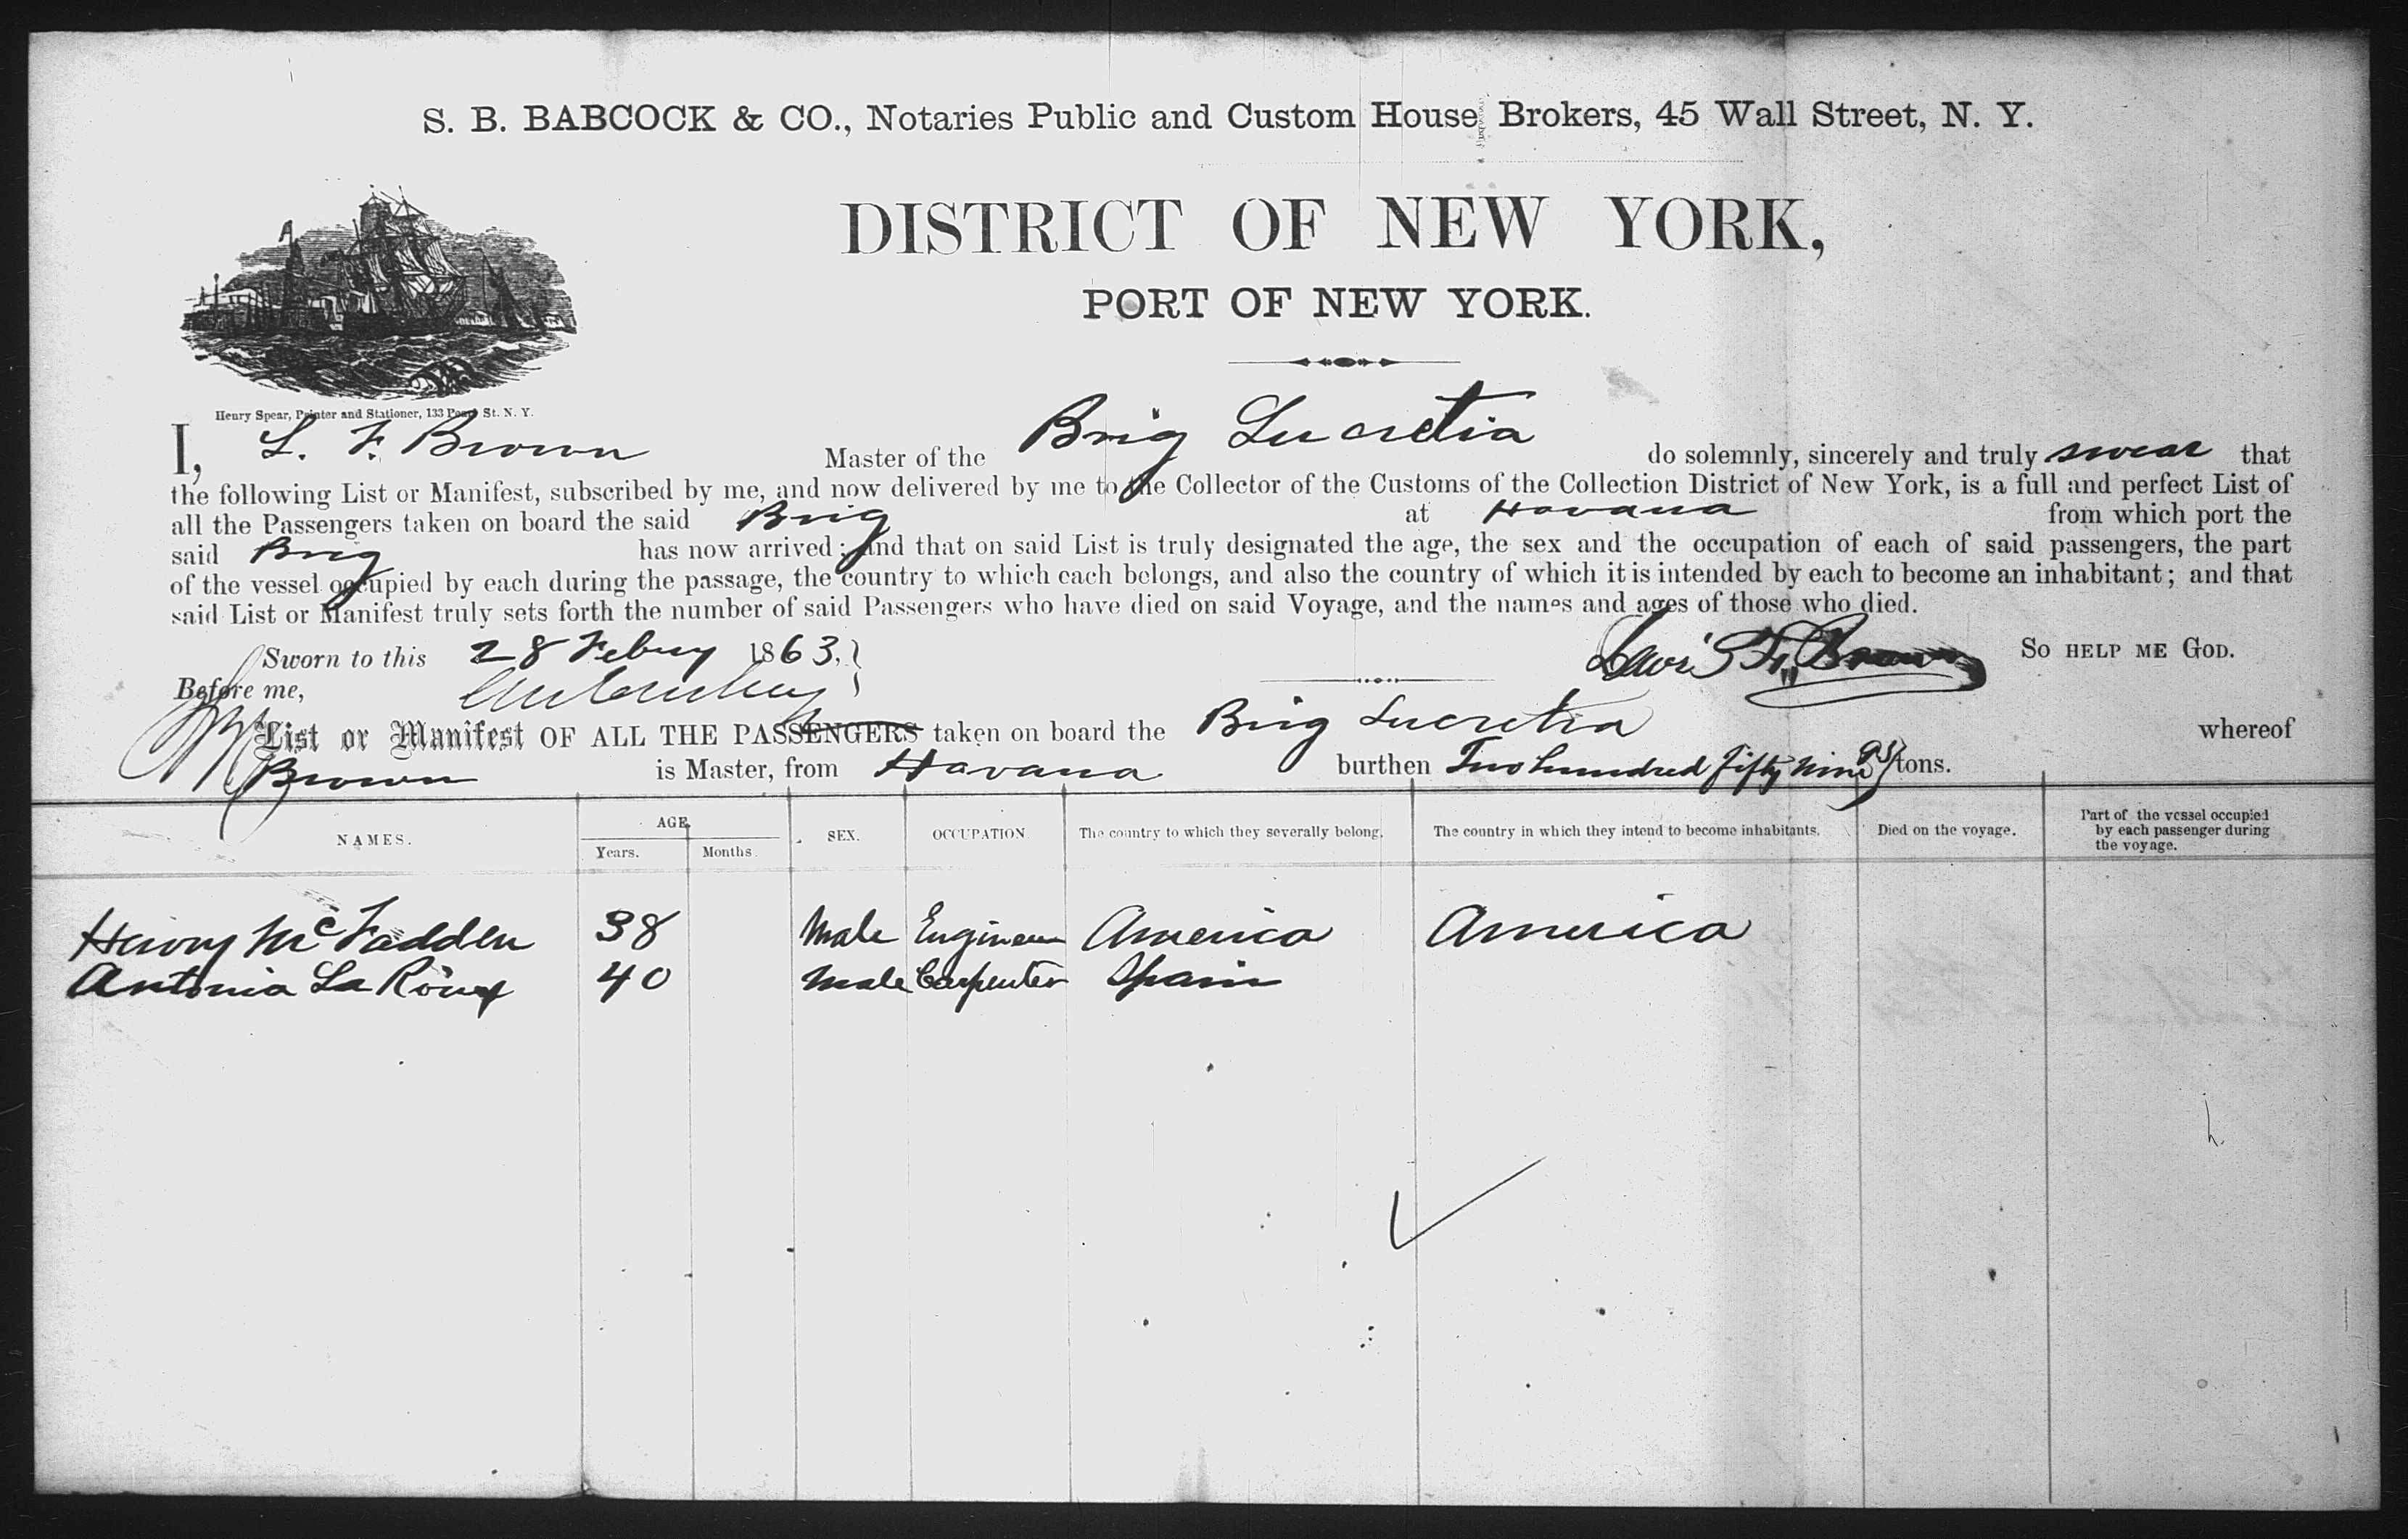 S. B. BABCOCK & CO., Notaries Public and Custom House Brokers, 45 Wall Street, N. Y.
DISTRICT OF NEW YORK,
PORT OF NEW YORK.
Henry Spear, Printer and Stationer, 133 Pearl St. N. Y.
I, L. F. Brown Master of the Brig Lucretia do solemnly, sincerely and truly swear that
the following List or Manifest, subscribed by me, and now delivered by me to the Collector of the Customs of the Collection District of New York, is a full and perfect List of
all the Passengers taken on board the said Brig at Havana from which port the
said Brig has now arrived; and that on said List is truly designated the age, the sex and the occupation of each of said passengers, the part
of the vessel occupied by each during the passage, the country to which each belongs, and also the country of which it is intended by each to become an inhabitant; and that
said List or Manifest truly sets forth the number of said Passengers who have died on said Voyage, and the names and ages of those who died.
Sworn to this 28 Febuy 1863, F. Brown SO HELP ME GOD.
Before me,
List or Manifest OF ALL THE PASSENGERS taken on board the Brig Lucretia whereof
Brown is Master, from Havana burthen Two hundred fifty nine tons.
NAMES. AGE. Years. Months. SEX. OCCUPATION The country to which they severally belong. The country in which they intend to become inhabitants. Died on the voyage. Part of the vessel occupied by each passenger during the voyage.
Henry McFadden 38 Male Engineer America America
Antonia La Roux 40 Male Carpenter Spain